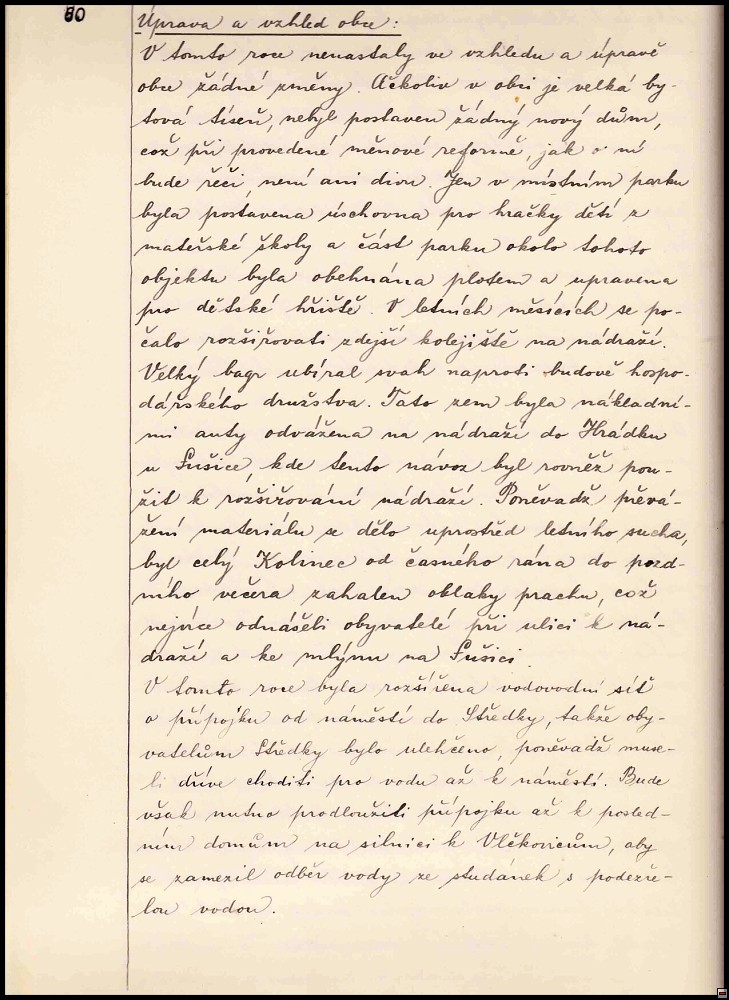 80
Úprava a vzhled obce:
V tomto roce nenastaly ve vzhledu a úpravě
obce žádné změny. Ačkoliv v obci je velká by-
tová tíseň, nebyl postaven žádný nový dům,
což při provedené měnové reformě, jak o ní
bude řeči, není ani divu. Jen v místním parku
byla postavena úschovna pro hračky dětí z
mateřské školy a část parku okolo tohoto
objektu byla obehnána plotem a upravena
pro dětské hřiště. V letních měsících se po-
čalo rozšiřovati zdejší kolejiště na nádraží.
Velký bagr ubíral svah naproti budově hospo-
dářského družstva. Tato zem byla nákladní-
mi auty odvážena na nádraží do Hrádku
u Sušice, kde tento návoz byl rovněž pou-
žit k rozšiřování nádraží. Poněvadž převá-
žení materiálu se dělo uprostřed letního sucha,
byl celý Kolinec od časného rána do pozd-
ního večera zahalen oblaky prachu, což
nejvíce odnášeli obyvatelé při ulici k ná-
draží a ke mlýnu na Sušici.
V tomto roce byla rozšířena vodovodní síť
o přípojku od náměstí do Středky, takže oby-
vatelům Středky bylo ulehčeno, poněvadž muse-
li dříve choditi pro vodu až k náměstí. Bude
však nutno prodloužiti přípojku až k posled-
ním domům na silnici k Vlčkovicům, aby
se zamezil odběr vody ze studánek s podezře-
lou vodou.